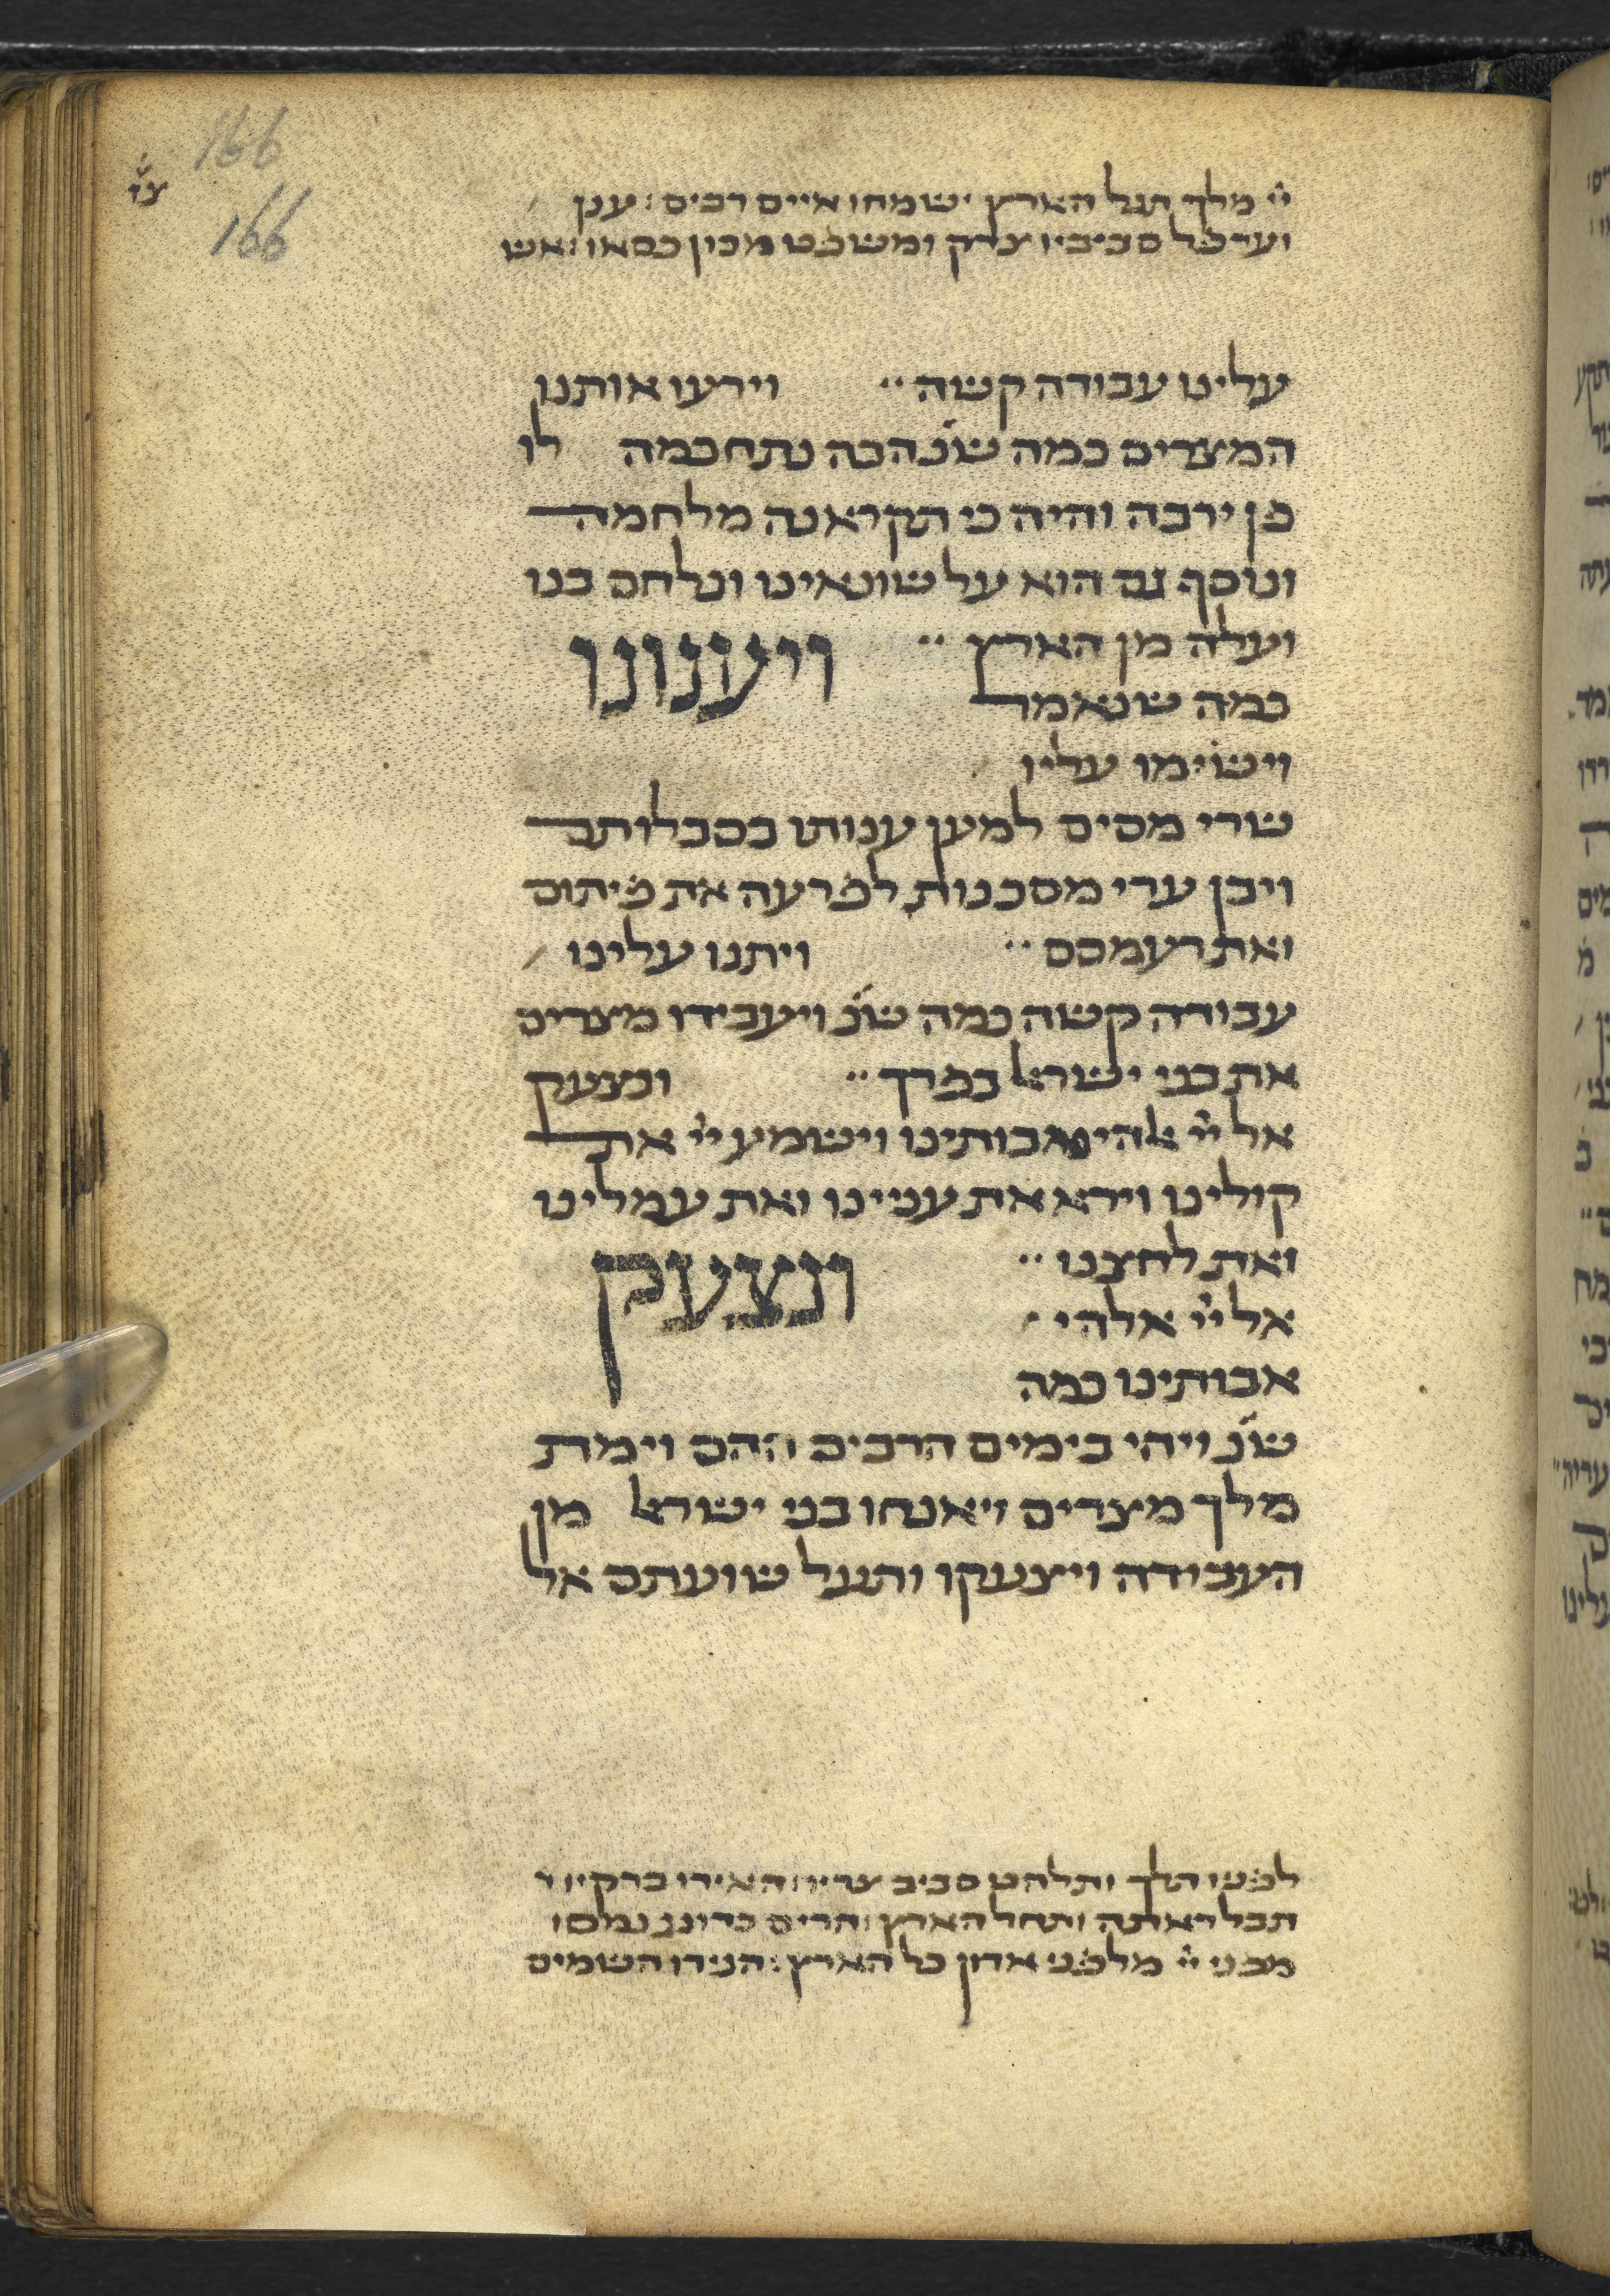 166
166
צו
יי מלך תגל הארץ ישמחו איים רבים: ענן
וערפל סביביו צדק ומשפט מכון כסאו: אש
עלינו עבודה קשה·· וירעו אותנו
המצרים כמה שנ׳ הבה נתחכמה לו
פן ירבה והיה כי תקראנה מלחמה
ונוסף גם הוא על שונאינו ונלחם בנו
ועלה מן הארץ·· ויענונו
כמה שנאמר
וישימו עליו
שרי מסים למען ענותו בסבלותם
ויבן ערי מסכנות לפרעה את פיתום
ואת רעמסס·· ויתנו עלינו
עבודה קשה כמה שנ׳ ויעבידו מצרים
את בני ישראל בפרך·· ונצעק
אל יי אלהי אבותינו וישמע יי את
קולינו וירא את ענינו ואת עמלינו
ואת לחצנו·· ונצעק
אל יי אלהי
אבותינו כמה
שנ׳ ויהי בימים הרבים ההם וימת
מלך מצרים ויאנחו בני ישראל מן
העבודה ויצעקו ותעל שועתם אל
לפניו תלך ותלהט סביב צריו: האירו ברקיו
תבל ראתה ותחל הארץ: הרים כדונג נמסו
מפני יי מלפני אדון כל הארץ: הגידו השמים